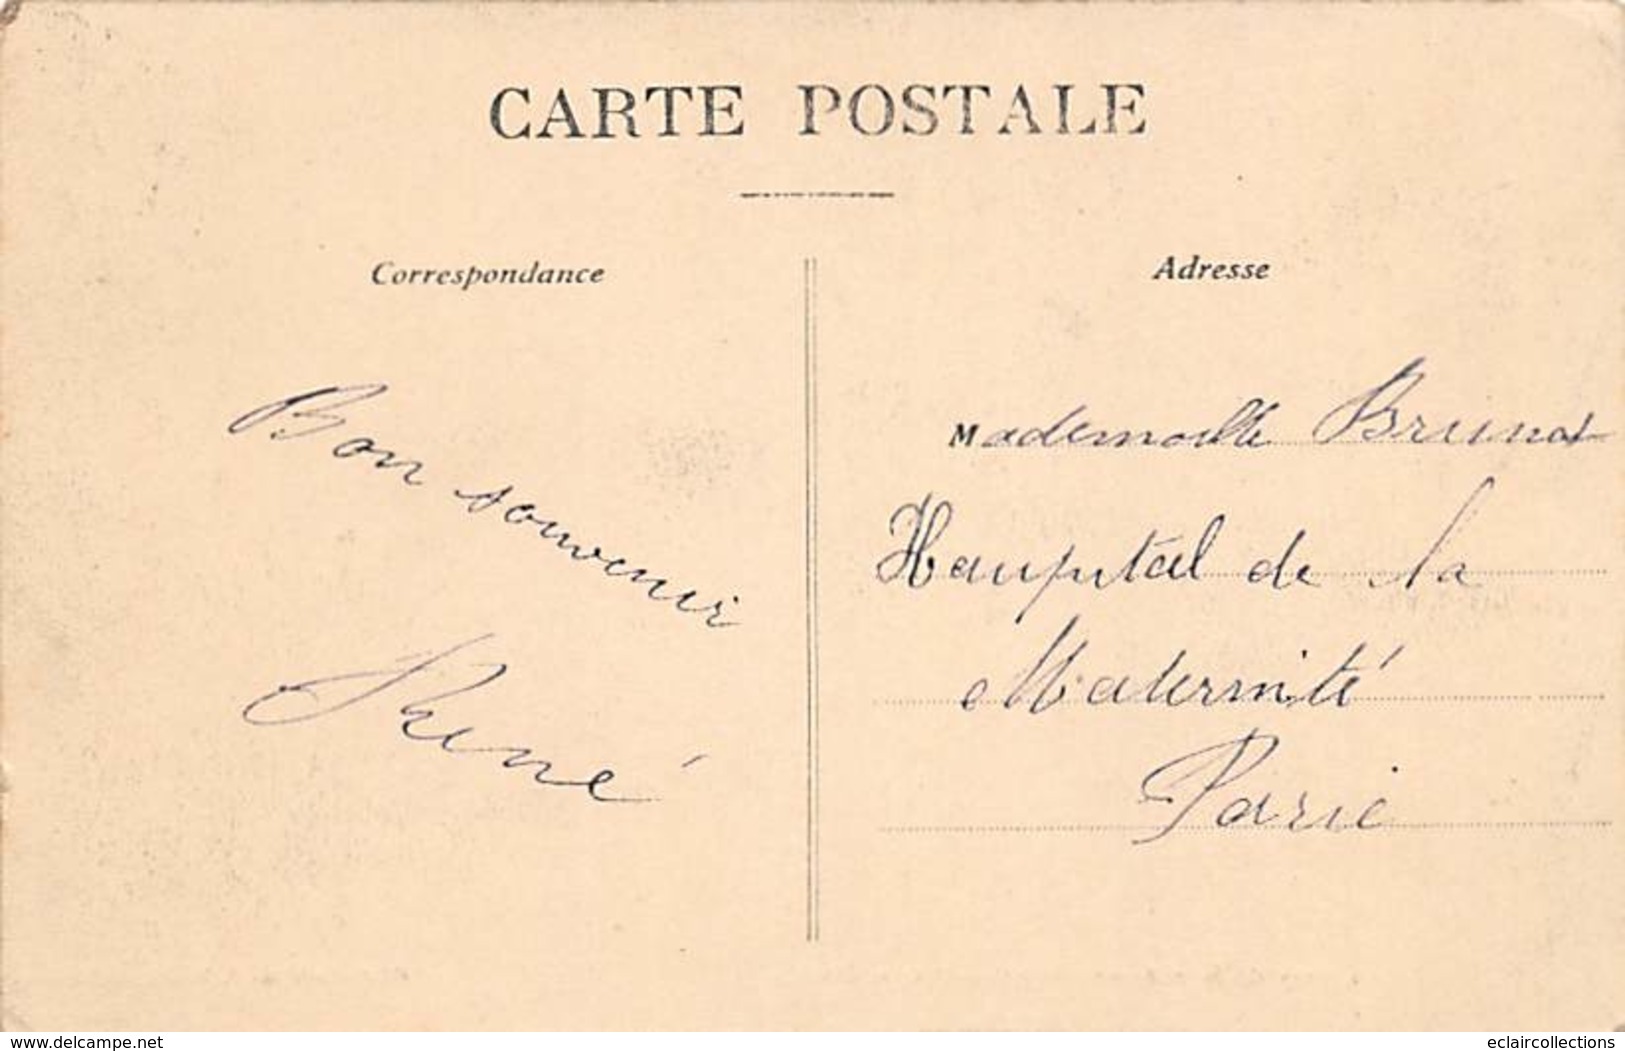 CARTE POSTALE
Correspondance
Bon souvenir
René
Adresse
Mademoiselle Brunot
Haupital de la
Maternité
Paris
www.delcampe.net
eclaircollections